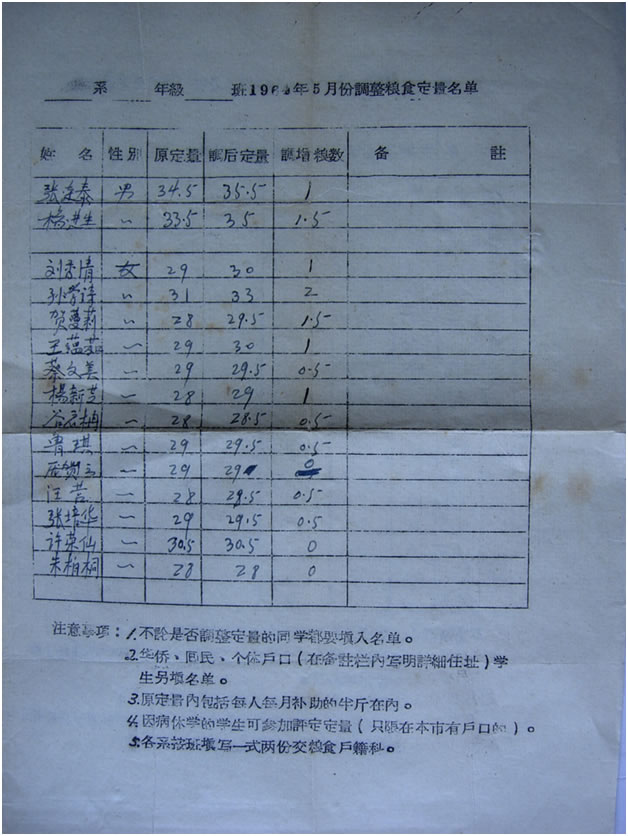 系 年級 班196 年5月份調整粮食定量名单
姓 名 性別 原定量 調后定量 調增粮数 备 註
张廷泰 男 34.5 35.5 1
楊进生 〃 33.5 35 1.5
刘秀情 女 29 30 1
孙 〃 31 33 2
贺蔓莉 〃 28 29.5 1.5
王蕴茹 〃 29 30 1
蔡文美 〃 29 29.5 0.5
楊新芝 〃 28 29 1
谷 〃 28 28.5 0.5
曹琪 〃 29 29.5 0.5
〃 29 29 0
汪 〃 28 29.5 0.5
张培华 〃 29 29.5 0.5
许荣仙 〃 30.5 30.5 0
朱柏桐 〃 28 28 0
注意事項：1.不論是否調整定量的同学都要填入名单。
2.华侨、回民、个体戶口（在备註栏內写明詳細住址）学
生另填名单。
3.原定量內包括每人每月补助的半斤在內。
4.因病休学的学生可参加評定定量（只限在本市有戶口的）。
5.各系按班填写一式两份交粮食戶籍科。